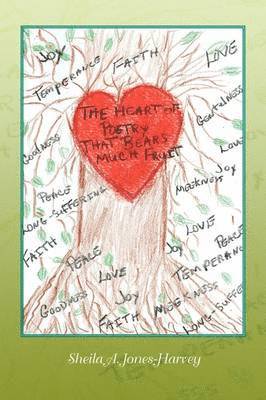 JOY
TEMPERANCE
FAITH
LOVE
THE HEART OF
POETRY
THAT BEARS
MUCH FRUIT
GENTLENESS
GOODNESS
LOVE
JOY
MEEKNESS
PEACE
LONG-SUFFERING
FAITH
JOY
LOVE
PEACE
PEACE
LOVE
TEMPERANC
GOODNESS
JOY
MEEKNESS
FAITH
LONG-SUFFE
Sheila A. Jones-Harvey